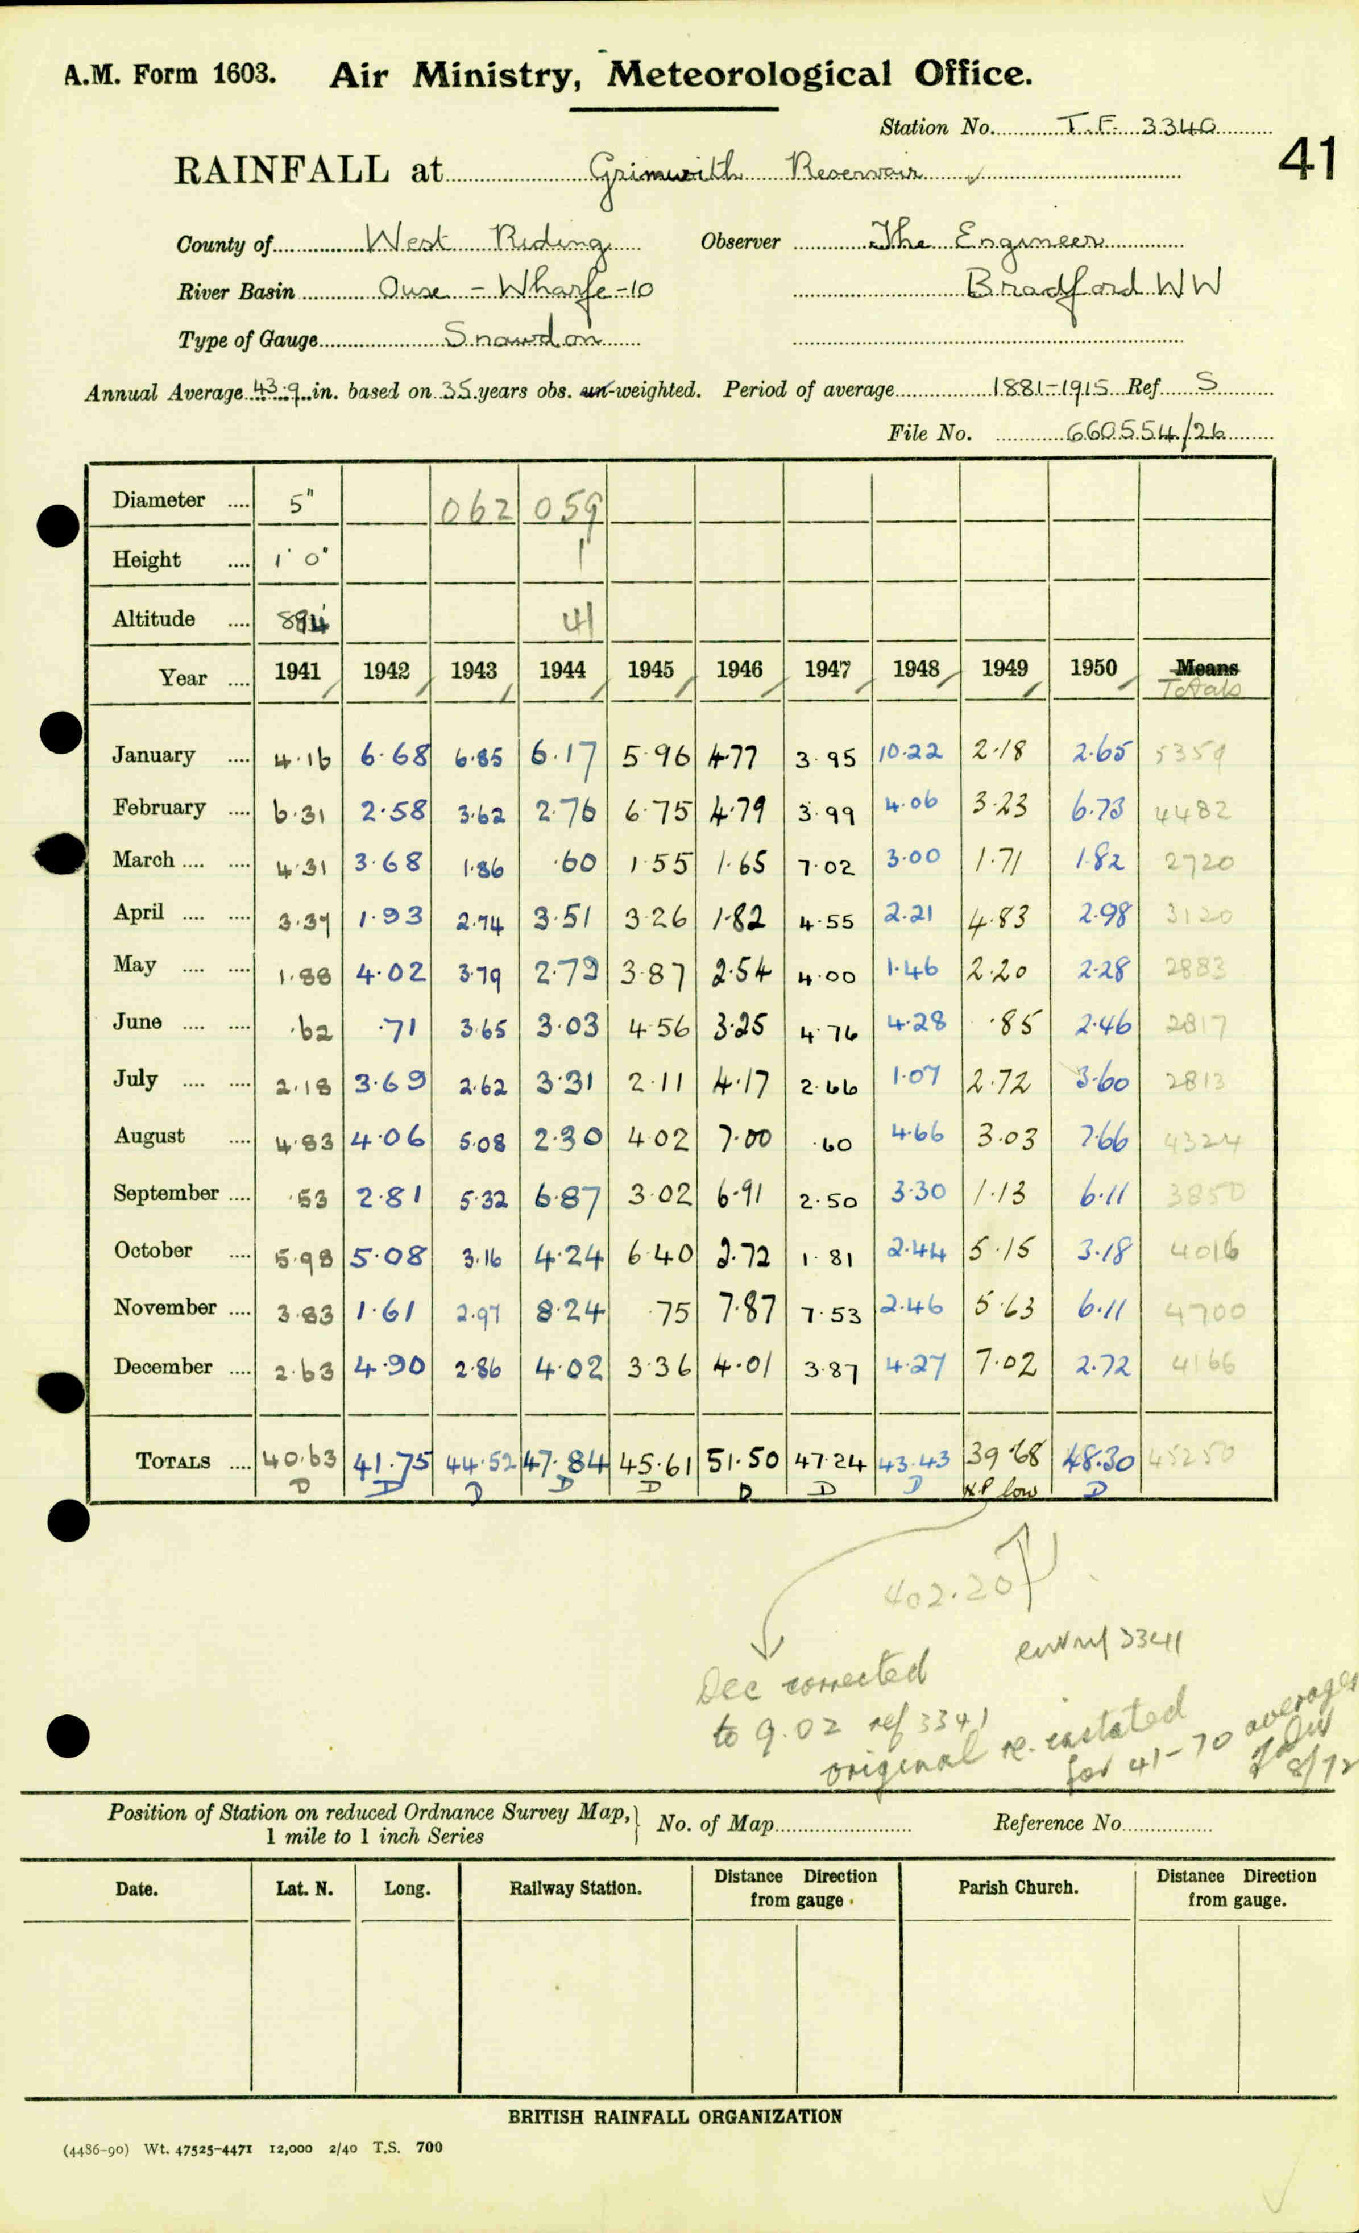 A.M. Form 1603. Air Ministry, Meteorological Office.
Station No. T.F. 3340
41
RAINFALL at Grimwith Reservoir ✓
County of West Riding Observer The Engineer
River Basin Ouse - Wharfe -10 Bradford WW
Type of Gauge Snowdon
Annual Average 43.9 in. based on 35 years obs. un-weighted. Period of average 1881-1915 Ref S
File No. 660554/26
Diameter .... 5" 062 059
Height .... 1' 0" 1
Altitude .... 894' 41
Year .... 1941 1942 1943 1944 1945 1946 1947 1948 1949 1950 Means
Totals
January .... 4.16 6.68 6.85 6.17 5.96 4.77 3.95 10.22 2.18 2.65 5359
February .... 6.31 2.58 3.62 2.76 6.75 4.79 3.99 4.06 3.23 6.73 4482
March .... .... 4.31 3.68 1.86 .60 1.55 1.65 7.02 3.00 1.71 1.82 2720
April .... .... 3.37 1.93 2.74 3.51 3.26 1.82 4.55 2.21 4.83 2.98 3120
May .... .... 1.88 4.02 3.79 2.79 3.87 2.54 4.00 1.46 2.20 2.28 2883
June .... .... .62 .71 3.65 3.03 4.56 3.25 4.76 4.28 .85 2.46 2817
July .... .... 2.18 3.69 2.62 3.31 2.11 4.17 2.66 1.07 2.72 3.60 2813
August .... 4.83 4.06 5.08 2.30 4.02 7.00 .60 4.66 3.03 7.66 4324
September .... .53 2.81 5.32 6.87 3.02 6.91 2.50 3.30 1.13 6.11 3850
October .... 5.98 5.08 3.16 4.24 6.40 2.72 1.81 2.44 5.15 3.18 4016
November .... 3.83 1.61 2.97 8.24 .75 7.87 7.53 2.46 5.63 6.11 4700
December .... 2.63 4.90 2.86 4.02 3.36 4.01 3.87 4.27 7.02 2.72 4166
TOTALS .... 40.63 41.75 44.52 47.84 45.61 51.50 47.24 43.43 39.68 48.30 45250
D D D D D D D D low D
402.20
3341
Dec corrected
to 9.02 ref 3341
original re-instated
for 41-70 averages
8/72
Position of Station on reduced Ordnance Survey Map, } No. of Map Reference No.
1 mile to 1 inch Series
Date. Lat. N. Long. Railway Station. Distance Direction from gauge. Parish Church. Distance Direction from gauge.
BRITISH RAINFALL ORGANIZATION
(4486-90) Wt. 47525-4471 12,000 2/40 T.S. 700